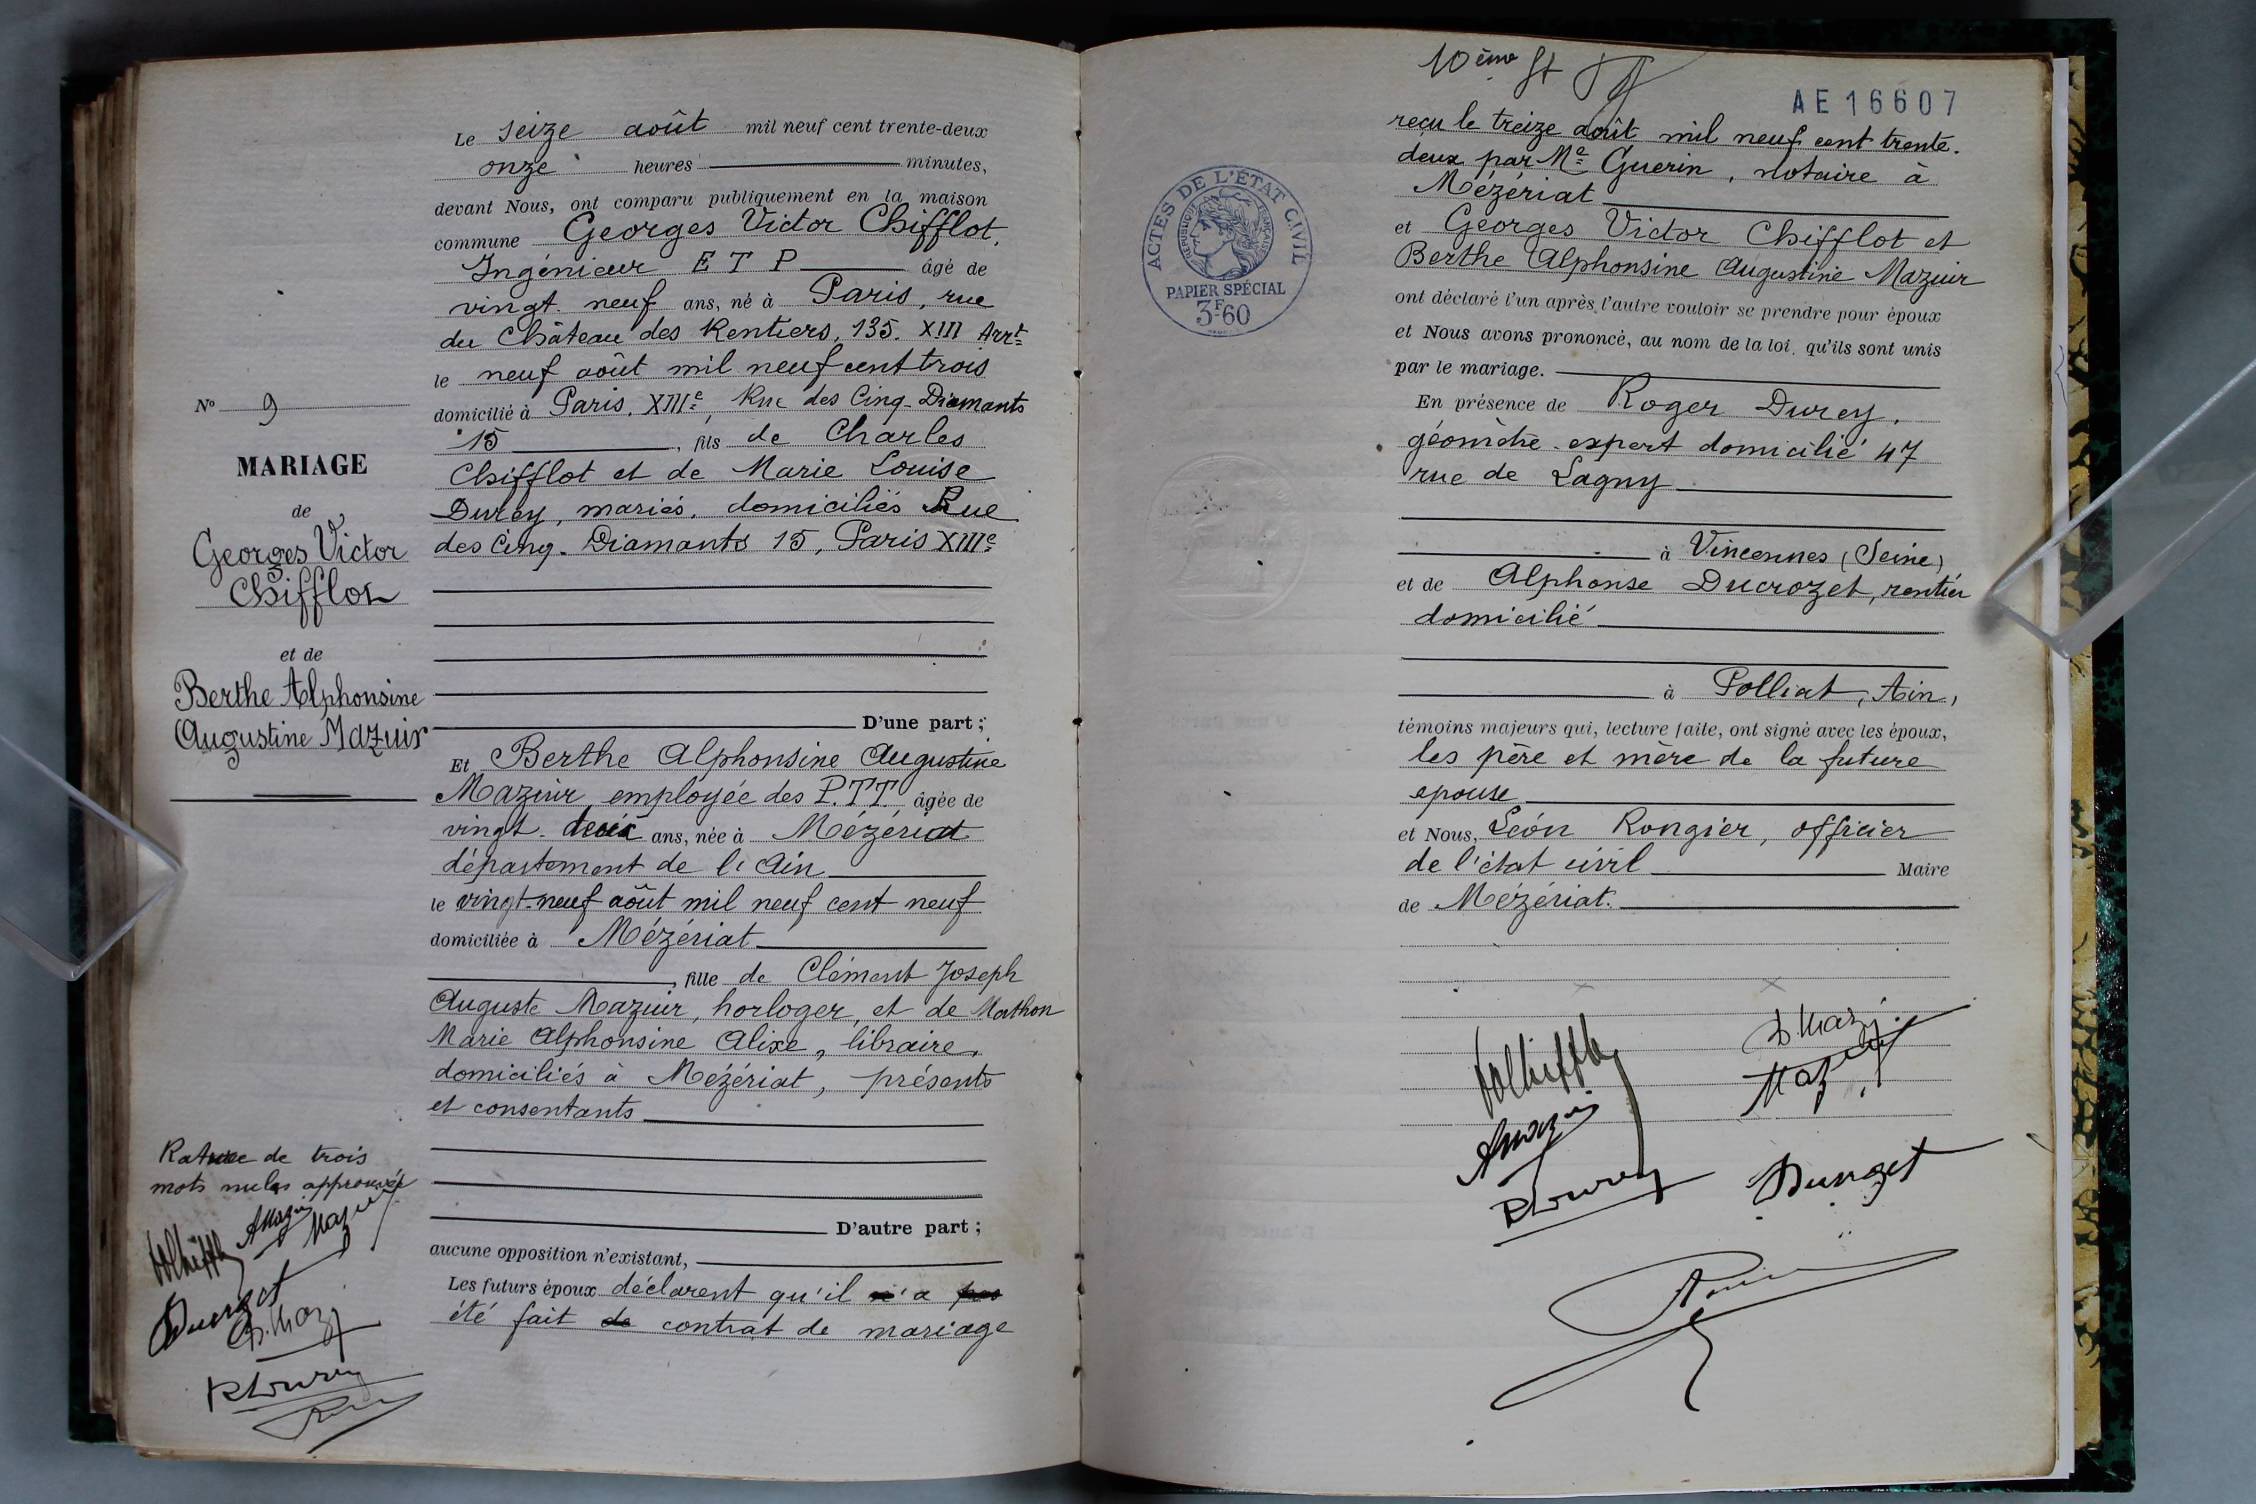 Le seize août mil neuf cent trente-deux
onze heures minutes,
devant Nous, ont comparu publiquement en la maison
commune Georges Victor Chifflot,
Ingénieur E T P âgé de
vingt-neuf ans, né à Paris, rue
du Château des Rentiers, 135. XIII Arrt
le neuf août mil neuf cent trois
domicilié à Paris, XIIIe, Rue des Cinq-Diamants
15, fils de Charles
Chifflot et de Marie Louise
Durey, mariés, domiciliés Rue
des Cinq-Diamants 15, Paris XIIIe
D'une part;
Et Berthe Alphonsine Augustine
Mazuir, employée des P.T.T. âgée de
vingt-deux ans, née à Mézériat
département de l'Ain
le vingt-neuf août mil neuf cent neuf
domiciliée à Mézériat
, fille de Clément Joseph
Auguste Mazuir, horloger, et de Mathon
Marie Alphonsine Alixe, libraire,
domiciliés à Mézériat, présents
et consentants
D'autre part;
aucune opposition n'existant,
Les futurs époux déclarent qu'il n'a pas
été fait de contrat de mariage
No 9
MARIAGE
de
Georges Victor
Chifflot
et de
Berthe Alphonsine
Augustine Mazuir
Rature de trois
mots nuls approuvée
AMazuir
Mazuir
Ducrozet
RDurey
10ème ft
AE16607
reçu le treize août mil neuf cent trente-
deux par Me Guerin, notaire à
Mézériat
et Georges Victor Chifflot et
Berthe Alphonsine Augustine Mazuir
ont déclaré l'un après l'autre vouloir se prendre pour époux
et Nous avons prononcé, au nom de la loi, qu'ils sont unis
par le mariage.
En présence de Roger Durey,
géomètre-expert domicilié 47
rue de Lagny
à Vincennes (Seine)
et de Alphonse Ducrozet, rentier
domicilié
à Polliat, Ain,
témoins majeurs qui, lecture faite, ont signé avec les époux,
les père et mère de la future
epouse
et Nous, Léon Rongier, officier
de l'état civil Maire
de Mézériat.
AMazuir
Mazuir
RDurey
Ducrozet
ACTES DE L'ÉTAT CIVIL
RÉPUBLIQUE FRANÇAISE
PAPIER SPÉCIAL
3F60